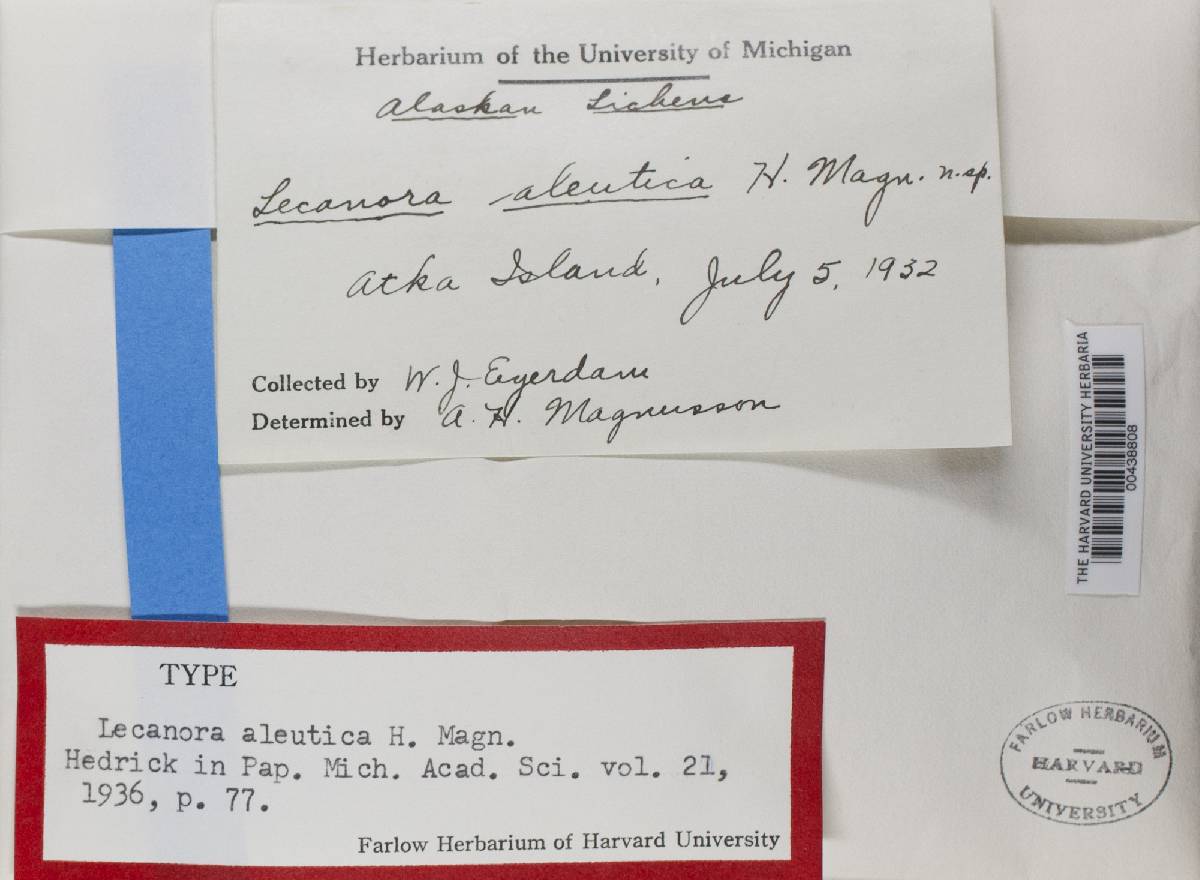 Herbarium of the University of Michigan
Alaskan Lichens
Lecanora aleutica H. Magn. n.sp.
Atka Island, July 5, 1932
Collected by W. J. Eyerdam
Determined by A. H. Magnusson
THE HARVARD UNIVERSITY HERBARIA
00438808
TYPE
Lecanora aleutica H. Magn.
Hedrick in Pap. Mich. Acad. Sci. vol. 21,
1936, p. 77.
Farlow Herbarium of Harvard University
FARLOW HERBARIUM
HARVARD
UNIVERSITY